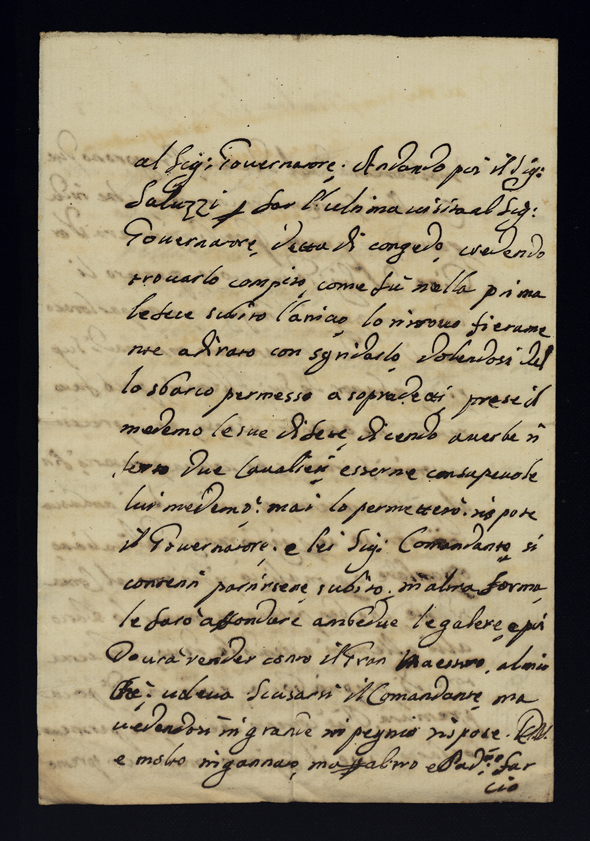 al Sig: Governatore. Andando poi il Sig:
Saluzzi p far l'ultima visita al Sig:
Governatore, detta di congedo, credendo
trovarlo compito, come fù nella prima
le fece subito l'anico, lo ritrovo fierame
nte adirato con sgridarlo, dolendosi del
lo sbarco permesso a sopradetti, prese il
medemo le sue difese, dicendo averle ñ
due Cavalieri esserne consapevole
lui medemo: mai lo permetterò. rispose
il Governatore. e lei Sig: Comandante, si
contenti partirsene subito. in altra forma,
le farò affondare ambedue le galere, e poi
Dovrà render conto il Gran Maestro, al mio
Rè: voleva Scusarsi il Comandante, ma
vedendosi in grande impegno rispose.
e molto ingannato, ma p altro e Pad:ne far
cio